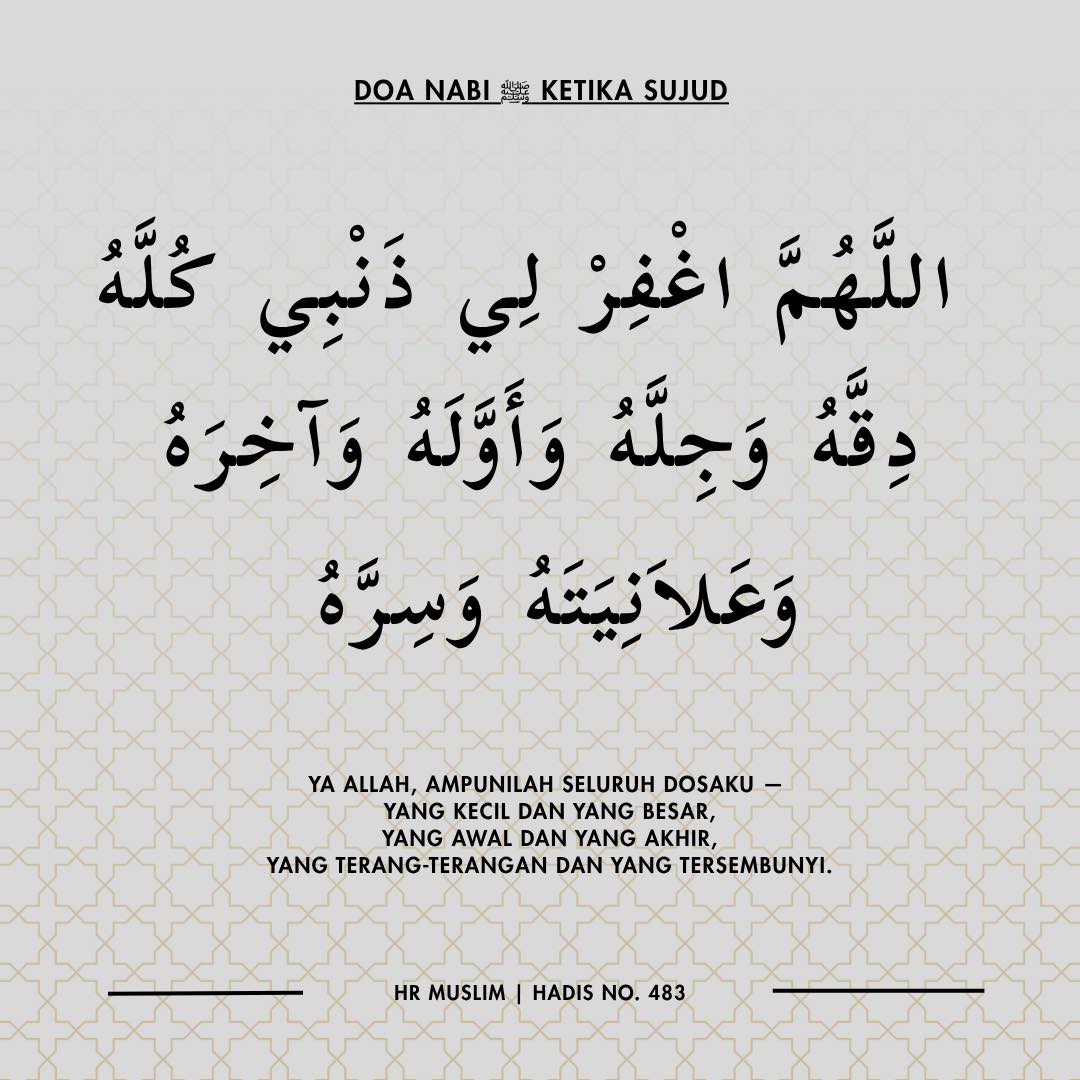 DOA NABI ﷺ KETIKA SUJUD
اللَّهُمَّ اغْفِرْ لِي ذَنْبِي كُلَّهُ
دِقَّهُ وَجِلَّهُ وَأَوَّلَهُ وَآخِرَهُ
وَعَلاَنِيَتَهُ وَسِرَّهُ
YA ALLAH, AMPUNILAH SELURUH DOSAKU —
YANG KECIL DAN YANG BESAR,
YANG AWAL DAN YANG AKHIR,
YANG TERANG-TERANGAN DAN YANG TERSEMBUNYI.
HR MUSLIM | HADIS NO. 483